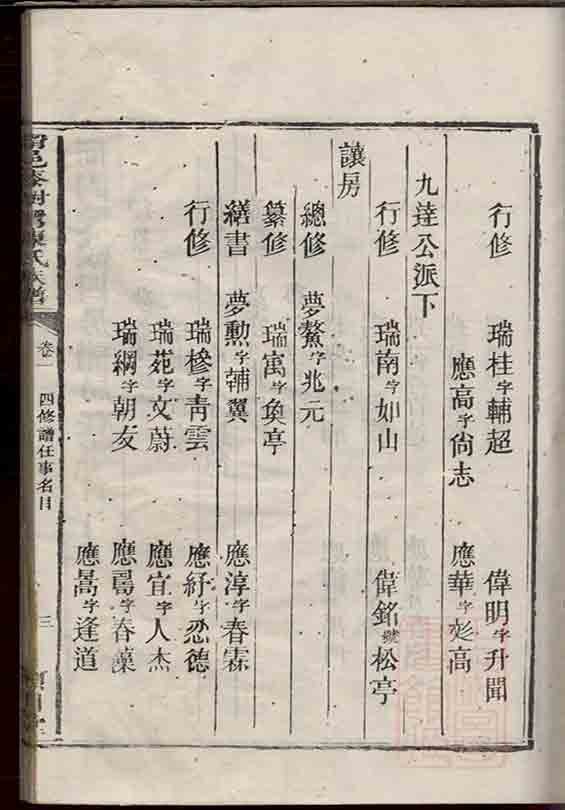 行修 瑞桂字輔超 偉明字升聞
應高字尙志 應華字彪高
九達公派下
行修 瑞南字如山 偉銘號松亭
讓房
總修 夢鰲字兆元
纂修 瑞寓字奐亭
繕書 夢勲字輔翼 應淳字春霖
行修 瑞槮字靑雲 應紓字恋德
瑞苑字文蔚 應宜字人杰
瑞綱字朝友 應字春藻
應暠字逢道
邑 陳氏族譜
卷一 四修譜任事名目 三